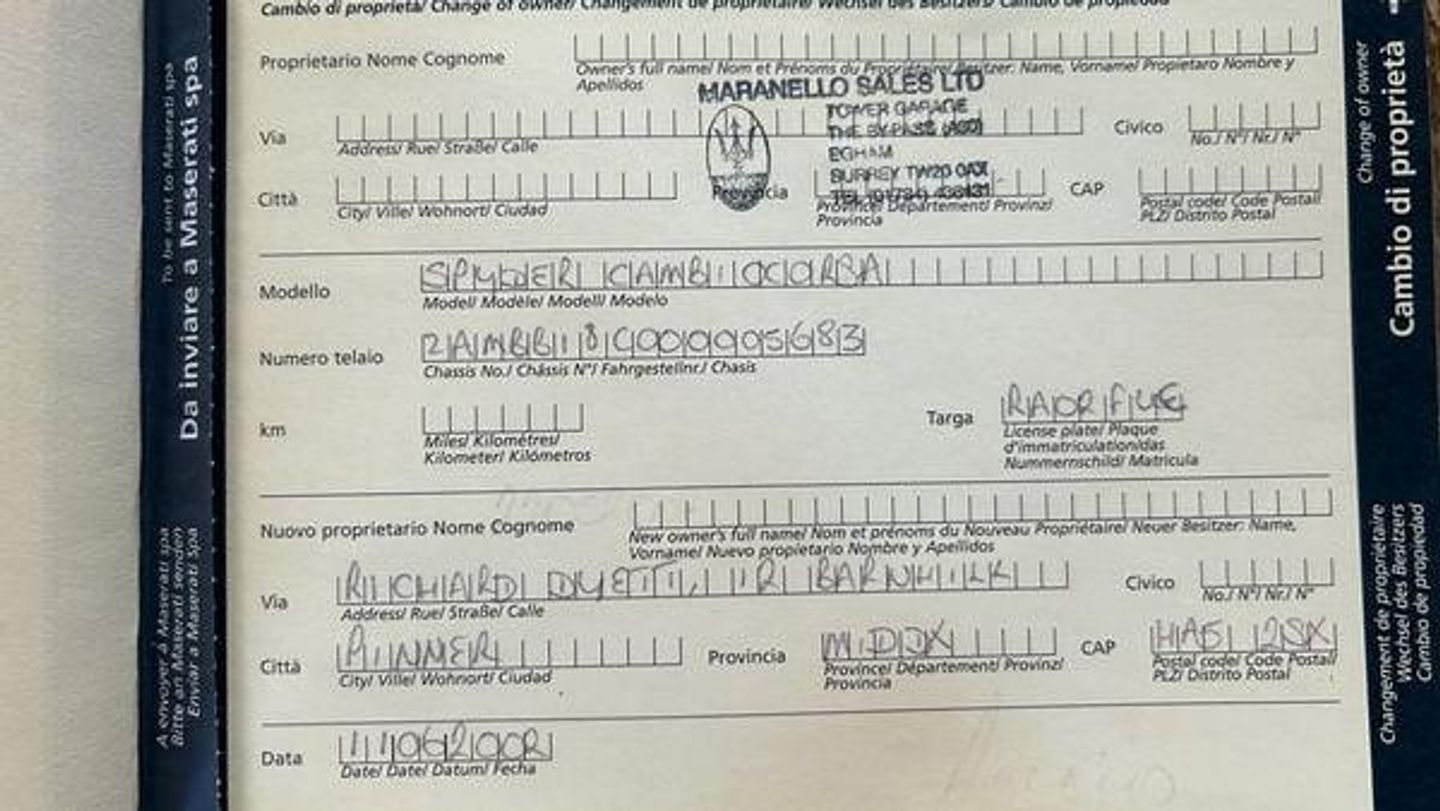 Cambio di proprietà/ Change of owner/ Changement de propriétaire/ Wechsel des Besitzers/ Cambio de propiedad
Proprietario Nome Cognome
Owner's full name/ Nom et Prénoms du Propriétaire/ Besitzer: Name, Vorname/ Propietaro Nombre y
Apellidos
MARANELLO SALES LTD
TOWER GARAGE
THE BY-PASS (A30)
EGHAM
SURREY TW20 0AX
Via
Address/ Rue/ Straße/ Calle
Civico
No./ N°/ Nr./ N°
Città
City/ Ville/ Wohnort/ Ciudad
Provincia
Province/ Département/ Provinz/
Provincia
CAP
Postal code/ Code Postal/
PLZ/ Distrito Postal
Modello
SPYDER CAMBIOCORSA
Model/ Modèle/ Modell/ Modelo
Numero telaio
Chassis No./ Châssis N°/ Fahrgestellnr./ Chasis
km
Miles/ Kilomètres/
Kilometer/ Kilómetros
Targa
License plate/ Plaque
d'immatriculation/das
Nummernschild/ Matricula
Nuovo proprietario Nome Cognome
New owner's full name/ Nom et prénoms du Nouveau Propriétaire/ Neuer Besitzer: Name,
Vorname/ Nuevo propietario Nombre y Apellidos
Via
RICHARD DYETT, 1 R BARNHILL
Address/ Rue/ Straße/ Calle
Civico
No./ N°/ Nr./ N°
Città
PINNER
City/ Ville/ Wohnort/ Ciudad
Provincia
MDDX
Province/ Département/ Provinz/
Provincia
CAP
HA5 2SX
Postal code/ Code Postal/
PLZ/ Distrito Postal
Data
11062002
Date/ Date/ Datum/ Fecha
To be sent to Maserati spa
Da inviare a Maserati spa
A envoyer à Maserati spa
Bitte an Maserati senden
Enviar a Maserati spa
Change of owner
Cambio di proprietà
Changement de propriétaire
Wechsel des Besitzers
Cambio de propiedad